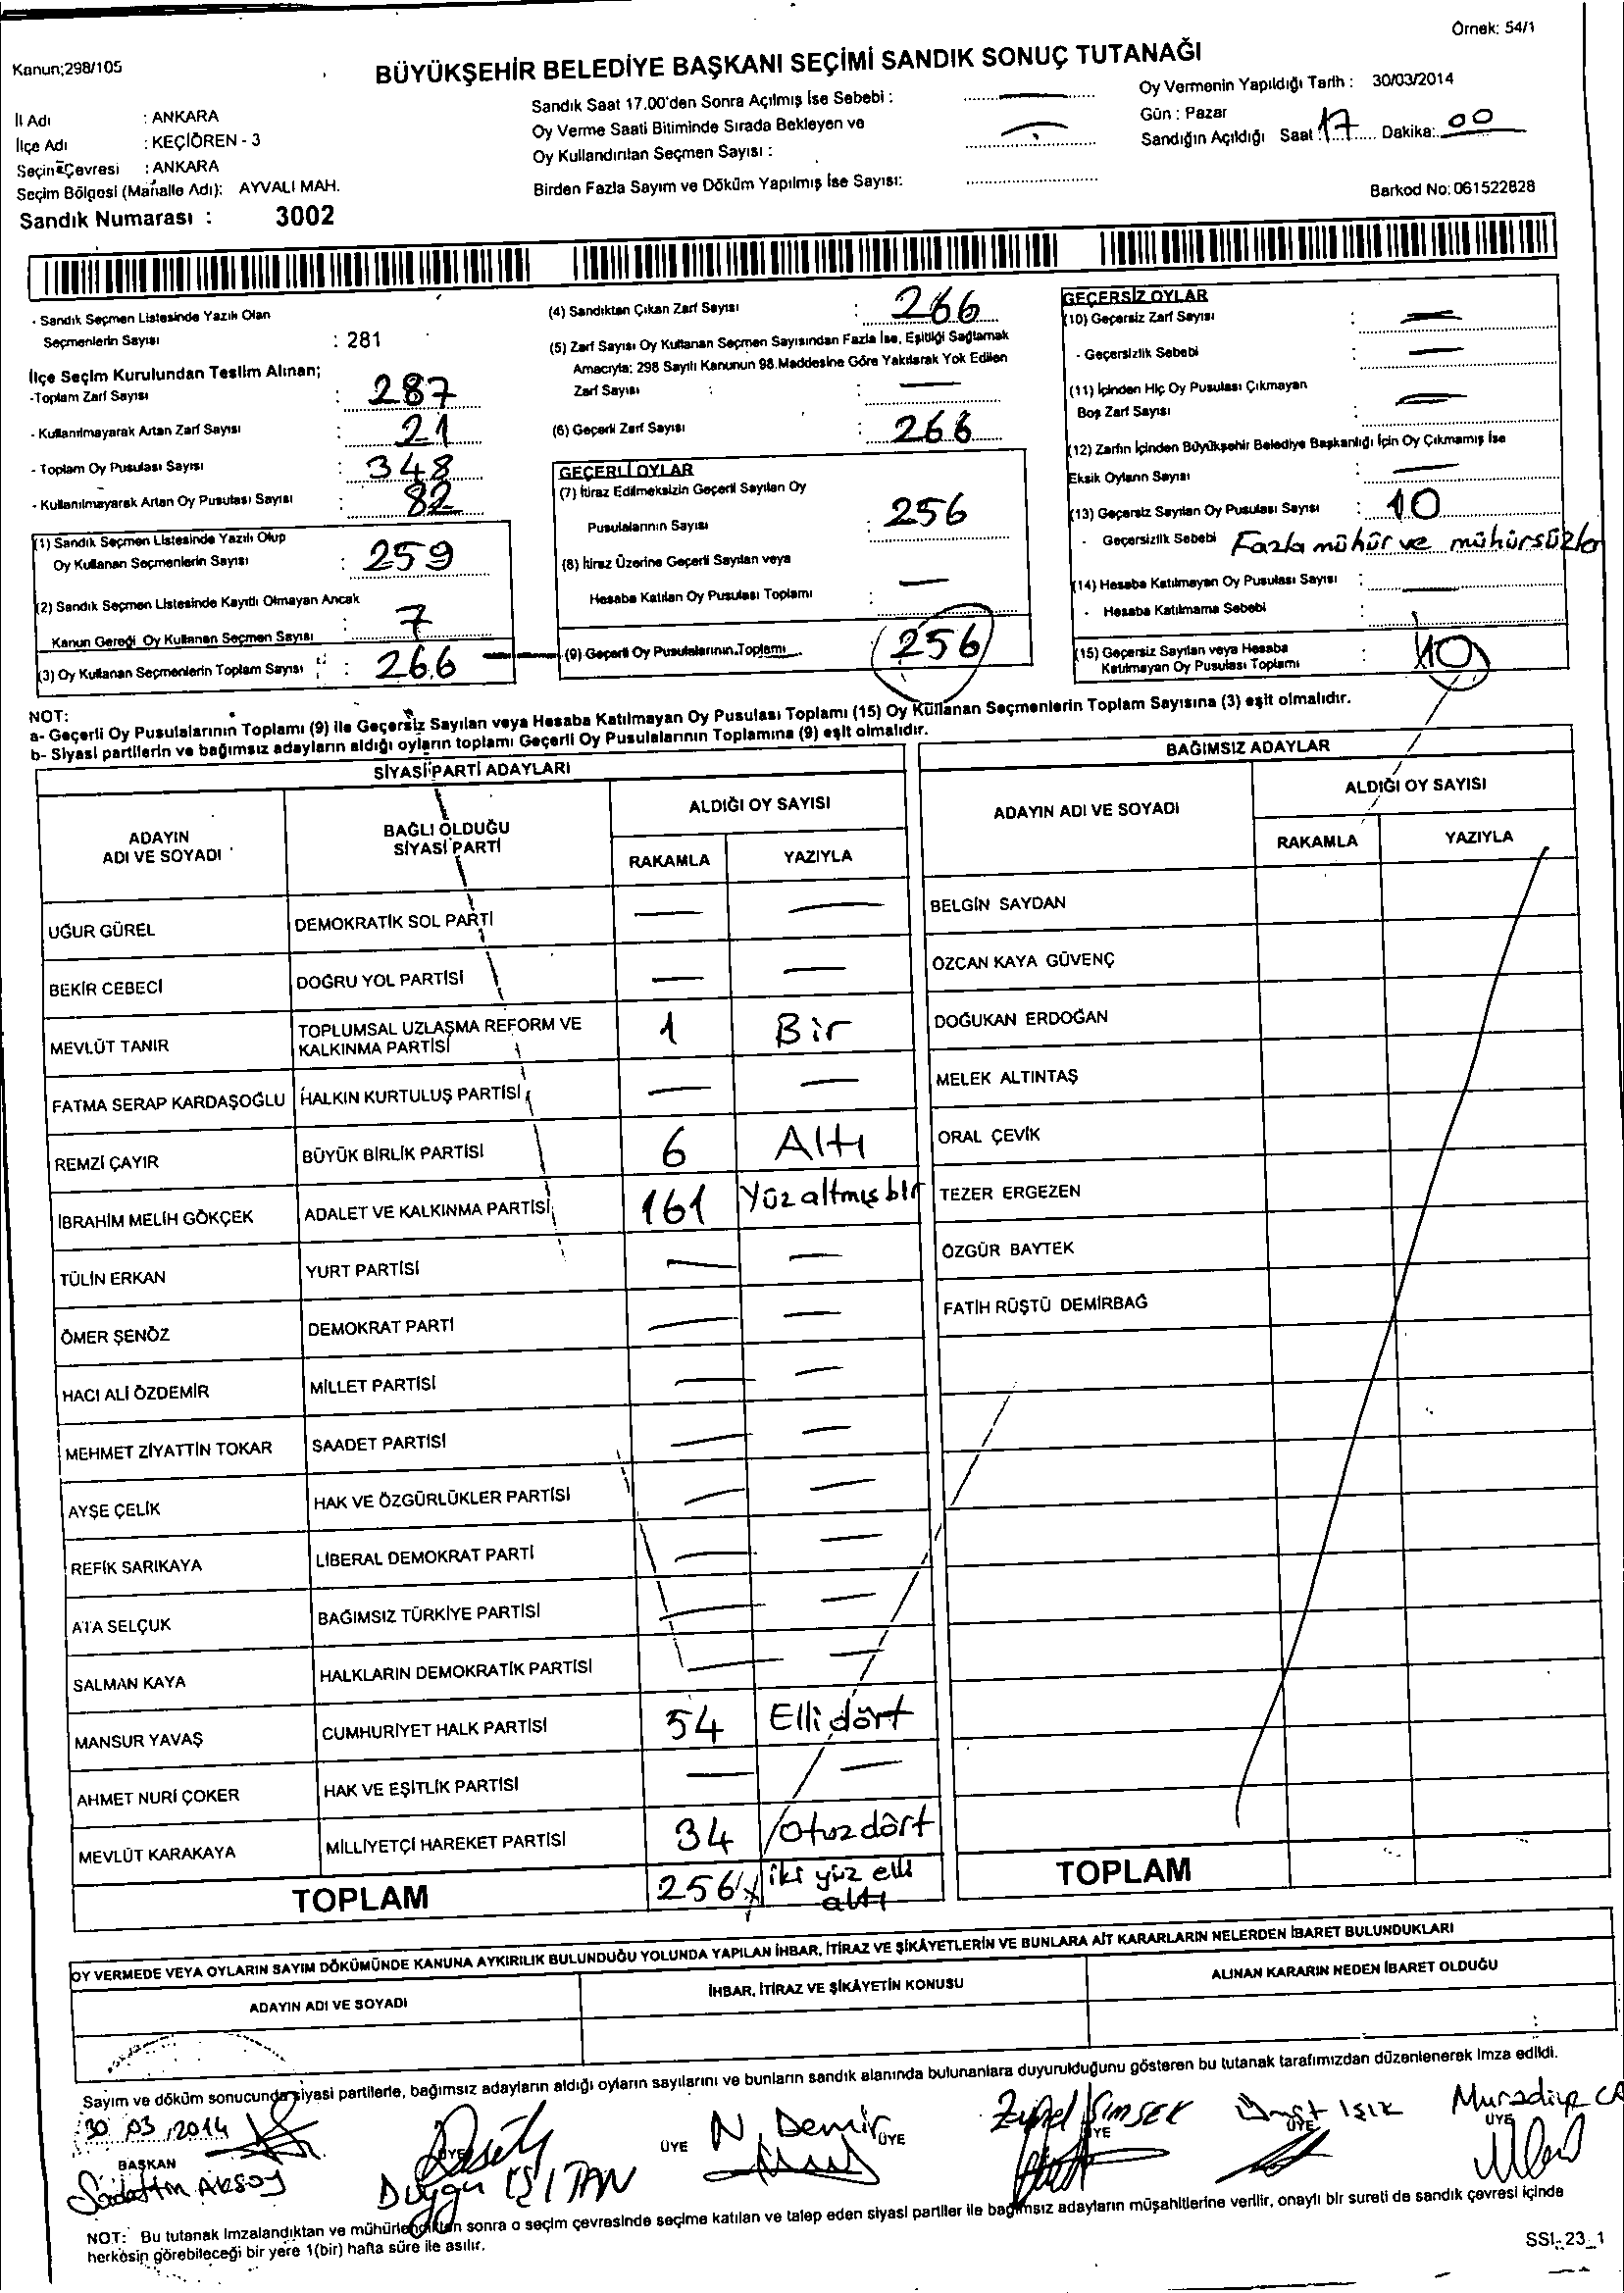 Örnek: 54/1
Kanun;298/105
BÜYÜKŞEHİR BELEDİYE BAŞKANI SEÇİMİ SANDIK SONUÇ TUTANAĞI
İl Adı : ANKARA
İlçe Adı : KEÇİÖREN - 3
Seçim Çevresi : ANKARA
Seçim Bölgesi (Mahalle Adı): AYVALI MAH.
Sandık Numarası : 3002
Sandık Saat 17.00'den Sonra Açılmış İse Sebebi :
Oy Verme Saati Bitiminde Sırada Bekleyen ve
Oy Kullandırılan Seçmen Sayısı :
Birden Fazla Sayım ve Döküm Yapılmış İse Sayısı:
Oy Vermenin Yapıldığı Tarih : 30/03/2014
Gün : Pazar
Sandığın Açıldığı Saat 17 Dakika: 00
Barkod No: 061522828
- Sandık Seçmen Listesinde Yazılı Olan
Seçmenlerin Sayısı : 281
İlçe Seçim Kurulundan Teslim Alınan;
-Toplam Zarf Sayısı : 287
- Kullanılmayarak Artan Zarf Sayısı : 21
- Toplam Oy Pusulası Sayısı : 348
- Kullanılmayarak Artan Oy Pusulası Sayısı : 82
(1) Sandık Seçmen Listesinde Yazılı Olup
Oy Kullanan Seçmenlerin Sayısı : 259
(2) Sandık Seçmen Listesinde Kayıtlı Olmayan Ancak
Kanun Gereği Oy Kullanan Seçmen Sayısı : 7
(3) Oy Kullanan Seçmenlerin Toplam Sayısı : 266
(4) Sandıktan Çıkan Zarf Sayısı : 266
(5) Zarf Sayısı Oy Kullanan Seçmen Sayısından Fazla İse, Eşitliği Sağlamak
Amacıyla: 298 Sayılı Kanunun 98.Maddesine Göre Yakılarak Yok Edilen
Zarf Sayısı :
(6) Geçerli Zarf Sayısı : 266
GEÇERLİ OYLAR
(7) İtiraz Edilmeksizin Geçerli Sayılan Oy
Pusulalarının Sayısı : 256
(8) İtiraz Üzerine Geçerli Sayılan veya
Hesaba Katılan Oy Pusulası Toplamı :
(9) Geçerli Oy Pusulalarının Toplamı 256
GEÇERSİZ OYLAR
(10) Geçersiz Zarf Sayısı :
- Geçersizlik Sebebi :
(11) İçinden Hiç Oy Pusulası Çıkmayan
Boş Zarf Sayısı :
(12) Zarfın İçinden Büyükşehir Belediye Başkanlığı İçin Oy Çıkmamış İse
Eksik Oyların Sayısı :
(13) Geçersiz Sayılan Oy Pusulası Sayısı : 10
- Geçersizlik Sebebi Fazla mühür ve
(14) Hesaba Katılmayan Oy Pusulası Sayısı :
- Hesaba Katılmama Sebebi :
(15) Geçersiz Sayılan veya Hesaba
Katılmayan Oy Pusulası Toplamı : 10
NOT:
a- Geçerli Oy Pusulalarının Toplamı (9) ile Geçersiz Sayılan veya Hesaba Katılmayan Oy Pusulası Toplamı (15) Oy Kullanan Seçmenlerin Toplam Sayısına (3) eşit olmalıdır.
b- Siyasi partilerin ve bağımsız adayların aldığı oyların toplamı Geçerli Oy Pusulalarının Toplamına (9) eşit olmalıdır.
SİYASİ PARTİ ADAYLARI
ADAYIN ADI VE SOYADI BAĞLI OLDUĞU SİYASİ PARTİ ALDIĞI OY SAYISI
RAKAMLA YAZIYLA
UĞUR GÜREL DEMOKRATİK SOL PARTİ
BEKİR CEBECİ DOĞRU YOL PARTİSİ
MEVLÜT TANIR TOPLUMSAL UZLAŞMA REFORM VE KALKINMA PARTİSİ 1 Bir
FATMA SERAP KARDAŞOĞLU HALKIN KURTULUŞ PARTİSİ
REMZİ ÇAYIR BÜYÜK BİRLİK PARTİSİ 6 Altı
İBRAHİM MELİH GÖKÇEK ADALET VE KALKINMA PARTİSİ 161 Yüzaltmışbir
TÜLİN ERKAN YURT PARTİSİ
ÖMER ŞENÖZ DEMOKRAT PARTİ
HACI ALİ ÖZDEMİR MİLLET PARTİSİ
MEHMET ZİYATTİN TOKAR SAADET PARTİSİ
AYŞE ÇELİK HAK VE ÖZGÜRLÜKLER PARTİSİ
REFİK SARIKAYA LİBERAL DEMOKRAT PARTİ
ATA SELÇUK BAĞIMSIZ TÜRKİYE PARTİSİ
SALMAN KAYA HALKLARIN DEMOKRATİK PARTİSİ
MANSUR YAVAŞ CUMHURİYET HALK PARTİSİ 54 Elli dört
AHMET NURİ ÇOKER HAK VE EŞİTLİK PARTİSİ
MEVLÜT KARAKAYA MİLLİYETÇİ HAREKET PARTİSİ 34 Otuzdört
TOPLAM 256 iki yüz elli altı
BAĞIMSIZ ADAYLAR
ADAYIN ADI VE SOYADI ALDIĞI OY SAYISI
RAKAMLA YAZIYLA
BELGİN SAYDAN
ÖZCAN KAYA GÜVENÇ
DOĞUKAN ERDOĞAN
MELEK ALTINTAŞ
ORAL ÇEVİK
TEZER ERGEZEN
ÖZGÜR BAYTEK
FATİH RÜŞTÜ DEMİRBAĞ
TOPLAM
OY VERMEDE VEYA OYLARIN SAYIM DÖKÜMÜNDE KANUNA AYKIRILIK BULUNDUĞU YOLUNDA YAPILAN İHBAR, İTİRAZ VE ŞİKÂYETLERİN VE BUNLARA AİT KARARLARIN NELERDEN İBARET BULUNDUKLARI
ADAYIN ADI VE SOYADI İHBAR, İTİRAZ VE ŞİKÂYETİN KONUSU ALINAN KARARIN NEDEN İBARET OLDUĞU
Sayım ve döküm sonucunda siyasi partilerle, bağımsız adayların aldığı oyların sayılarını ve bunların sandık alanında bulunanlara duyurulduğunu gösteren bu tutanak tarafımızdan düzenlenerek imza edildi.
30 03 2014
BAŞKAN ÜYE ÜYE ÜYE ÜYE ÜYE ÜYE
Sadettin AKSOY Duygu IŞITAN N. Demir Zeynel ŞİMŞEK Ümit IŞIK
NOT: Bu tutanak imzalandıktan ve mühürlendikten sonra o seçim çevresinde seçime katılan ve talep eden siyasi partiler ile bağımsız adayların müşahitlerine verilir, onaylı bir sureti de sandık çevresi içinde
herkesin görebileceği bir yere 1(bir) hafta süre ile asılır.
SSI_23_1